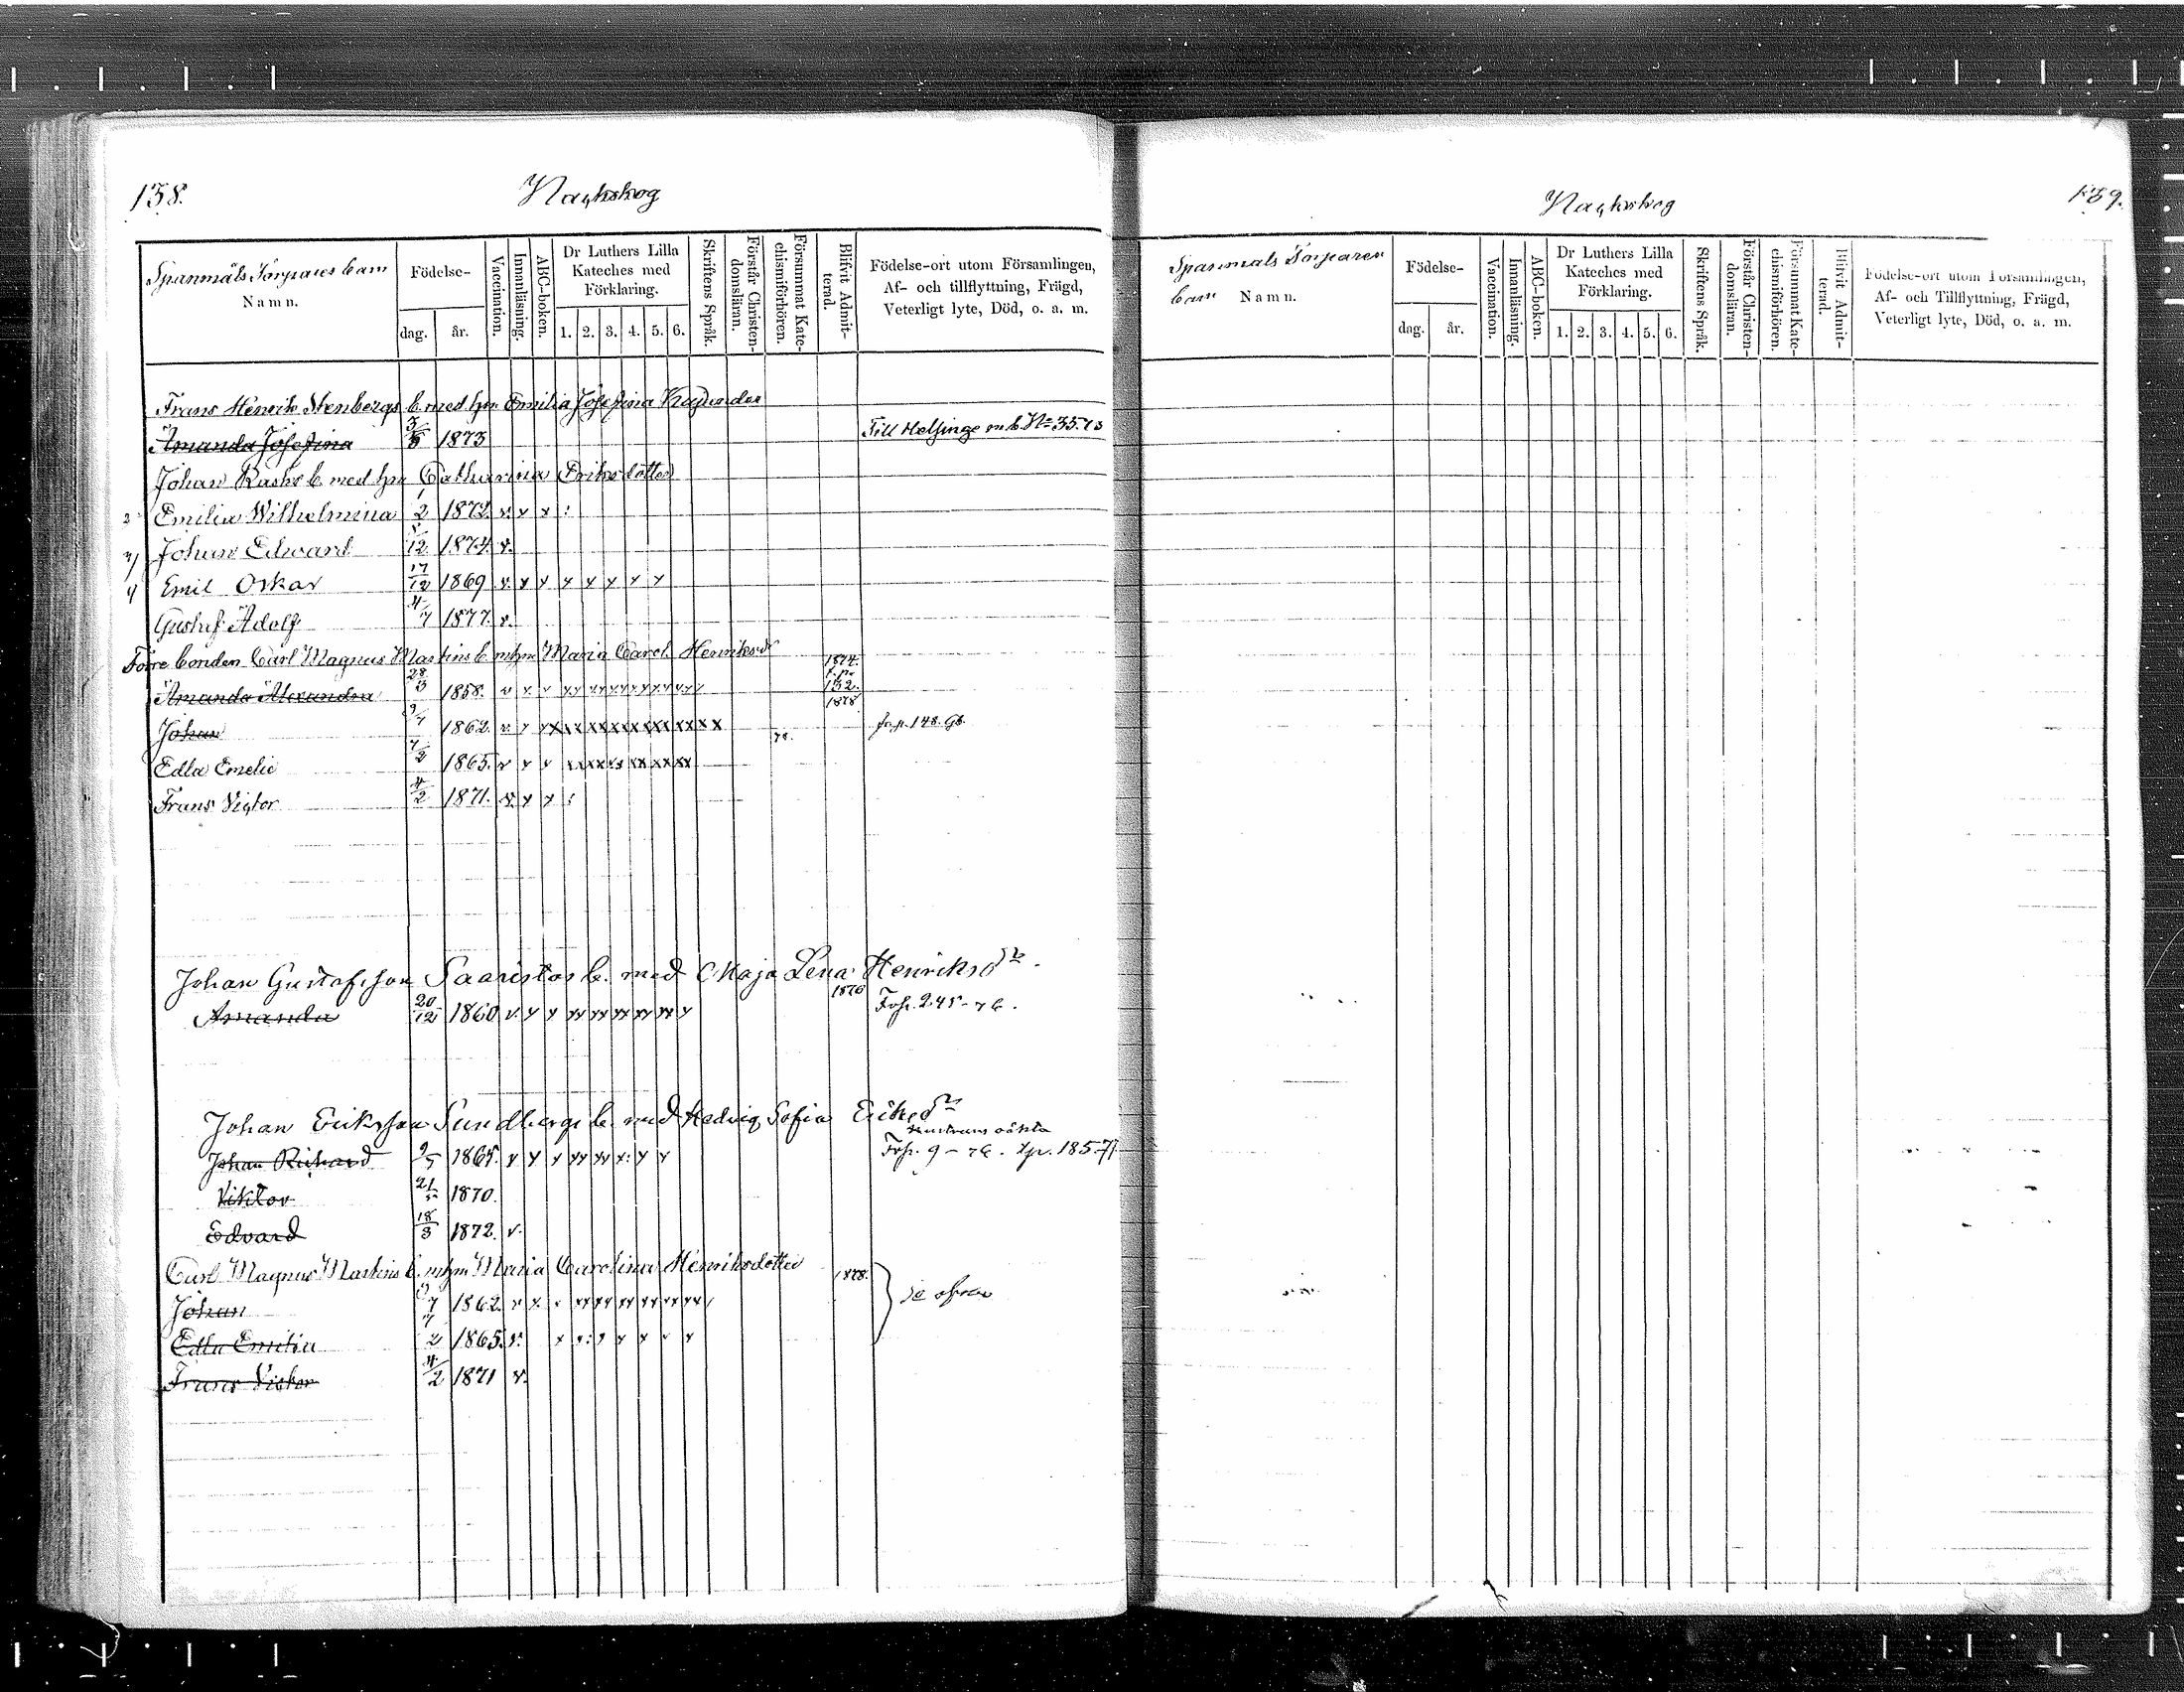 138.
Nackskog
Spanmåls Torpares barn
Namn.
Födelse-
dag.
år.
Vaccination.
Innanläsning.
ABC-boken.
Dr Luthers Lilla
Kateches med
Förklaring.
1. 2. 3. 4. 5. 6.
Skriftens Språk.
Förstår Christen-
domsläran.
Försummat Kate-
chismiförhören.
Blifvit Admit-
terad.
Födelse-ort utom Församlingen,
Af- och tillflyttning, Frägd,
Veterligt lyte, Död, o. a. m.
Frans Henrik Stenbergs b. med hu Emilia Josefina
Amanda Josefina 3/3 1873 Till Helsinge m. b. No 35. 73
Johan Rasks b. med hu Catharina Eriksdotter
2 Emilia Wilhelmina 1/2 1872. v. x x :
3/ Johan Edvard 12 1874. v.
4 Emil Oskar 17/12 1869 v. x x x x x x x
Gustaf Adolf 4/7 1877. v.
Förre bonden Carl Magnus Martins b. m hu Maria Carol. Henriksdr
Amanda Alexandra 28/3 1858. v x v xx xx xx xx xx xx 1874. 132.
Johan 3/7 1862. v. x x xx xx xx xx xx xx 1878 fr. p. 148. 96.
Edla Emelie 7/2 1865. v x v xx xx xx xx xx xx 78.
Frans Victor 4/2 1871. v. x x :
Johan Gustafsson Saaristos b. med Maja Lena Henriksdr.
Amanda 20/12 1860 v. x x xx xx xx xx xx x 1876 Frp. 245-76.
Johan Eriksson Sundbergs b. med Hedvig Sofia Eriksdr
Johan Richard 9/5 1865. x x x xx xx x: x x Frp. 9-76. 185.77
Viktor 21 1870.
Edvard 18/3 1872. v.
Carl Magnus Martins b. m hu Maria Carolina Henriksdotter
Johan 3/7 1862. v x. v xx xx xx xx xx xx 1878. se ofvan
Edla Emilia 7/2 1865. v. x x: x x x v x
Frans Victor 4/2 1871 v.
139.
Nackskog
Spanmåls Torpares
barn Namn.
Födelse-
dag.
år.
Vaccination.
Innanläsning.
ABC-boken.
Dr Luthers Lilla
Kateches med
Förklaring.
1. 2. 3. 4. 5. 6.
Skriftens Språk.
Förstår Christen-
domsläran.
Försummat Kate-
chismiförhören.
Blifvit Admit-
terad.
Födelse-ort utom Församlingen,
Af- och Tillflyttning, Frägd,
Veterligt lyte, Död, o. a. m.